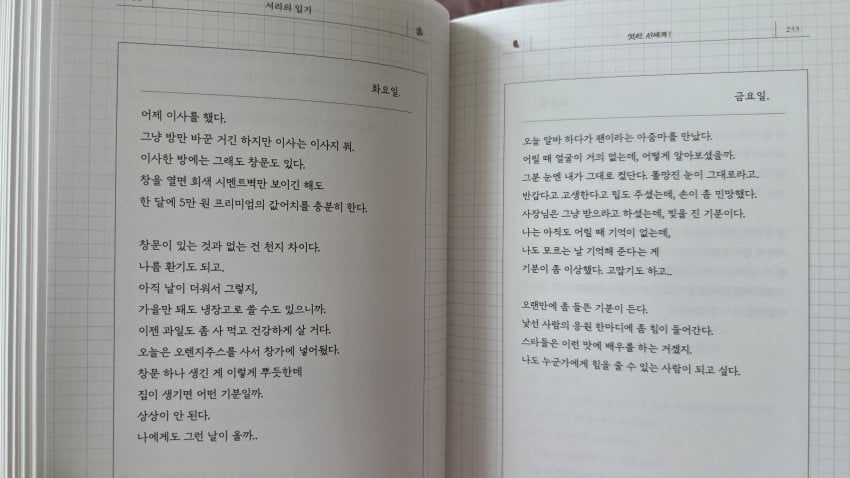 서리의 일기
화요일.
어제 이사를 했다.
그냥 방만 바꾼 거긴 하지만 이사는 이사지 뭐.
이사한 방에는 그래도 창문도 있다.
창을 열면 회색 시멘트벽만 보이긴 해도
한 달에 5만 원 프리미엄의 값어치를 충분히 한다.
창문이 있는 것과 없는 건 천지 차이다.
나름 환기도 되고.
아직 날이 더워서 그렇지,
가을만 돼도 냉장고로 쓸 수도 있으니까.
이젠 과일도 좀 사 먹고 건강하게 살 거다.
오늘은 오렌지주스를 사서 창가에 넣어뒀다.
창문 하나 생긴 게 이렇게 뿌듯한데
집이 생기면 어떤 기분일까.
상상이 안 된다.
나에게도 그런 날이 올까..
멋진 신세계!
233
금요일.
오늘 알바 하다가 팬이라는 아줌마를 만났다.
어릴 때 얼굴이 거의 없는데, 어떻게 알아보셨을까.
그분 눈엔 내가 그대로 컸단다. 똘망진 눈이 그대로라고.
반갑다고 고생한다고 팁도 주셨는데, 손이 좀 민망했다.
사장님은 그냥 받으라고 하셨는데, 빚을 진 기분이다.
나는 아직도 어릴 때 기억이 없는데,
나도 모르는 날 기억해 준다는 게
기분이 좀 이상했다. 고맙기도 하고..
오랜만에 좀 들뜬 기분이 든다.
낯선 사람의 응원 한마디에 좀 힘이 들어간다.
스타들은 이런 맛에 배우를 하는 거겠지.
나도 누군가에게 힘을 줄 수 있는 사람이 되고 싶다.